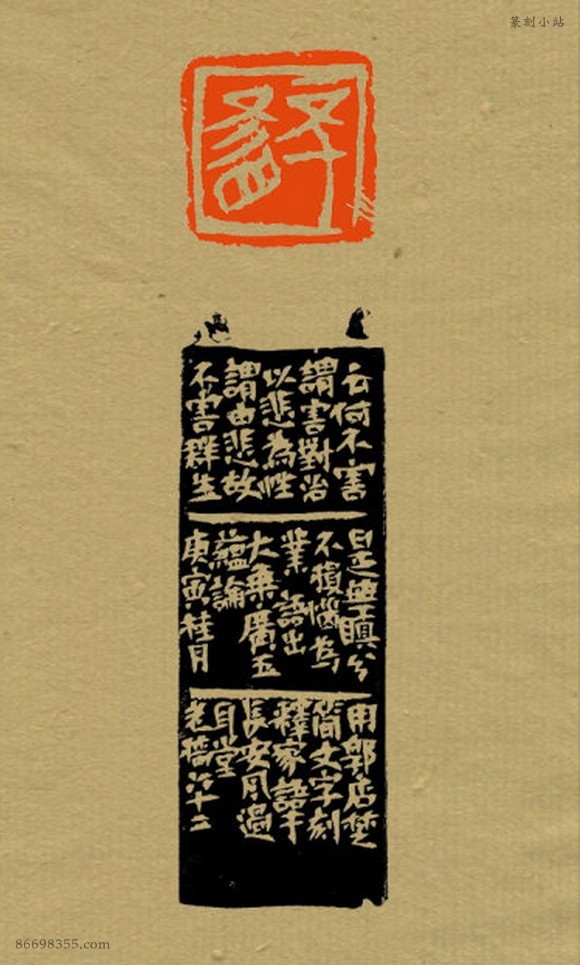 篆刻小站
云何不害
謂害對治
以悲為性
謂由悲故
不害群生
是無瞋分
不損惱為
業 語出
大乘廣五
蘊論
庚寅桂月
用郭店楚
簡文字刻
釋家語于
長安風過
耳堂
六十二
86698355.com